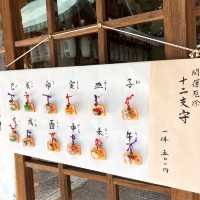 開運厄除
十二支守
一体 五〇〇
子
丑
寅
卯
辰
巳
午
未
申
酉
戌
亥